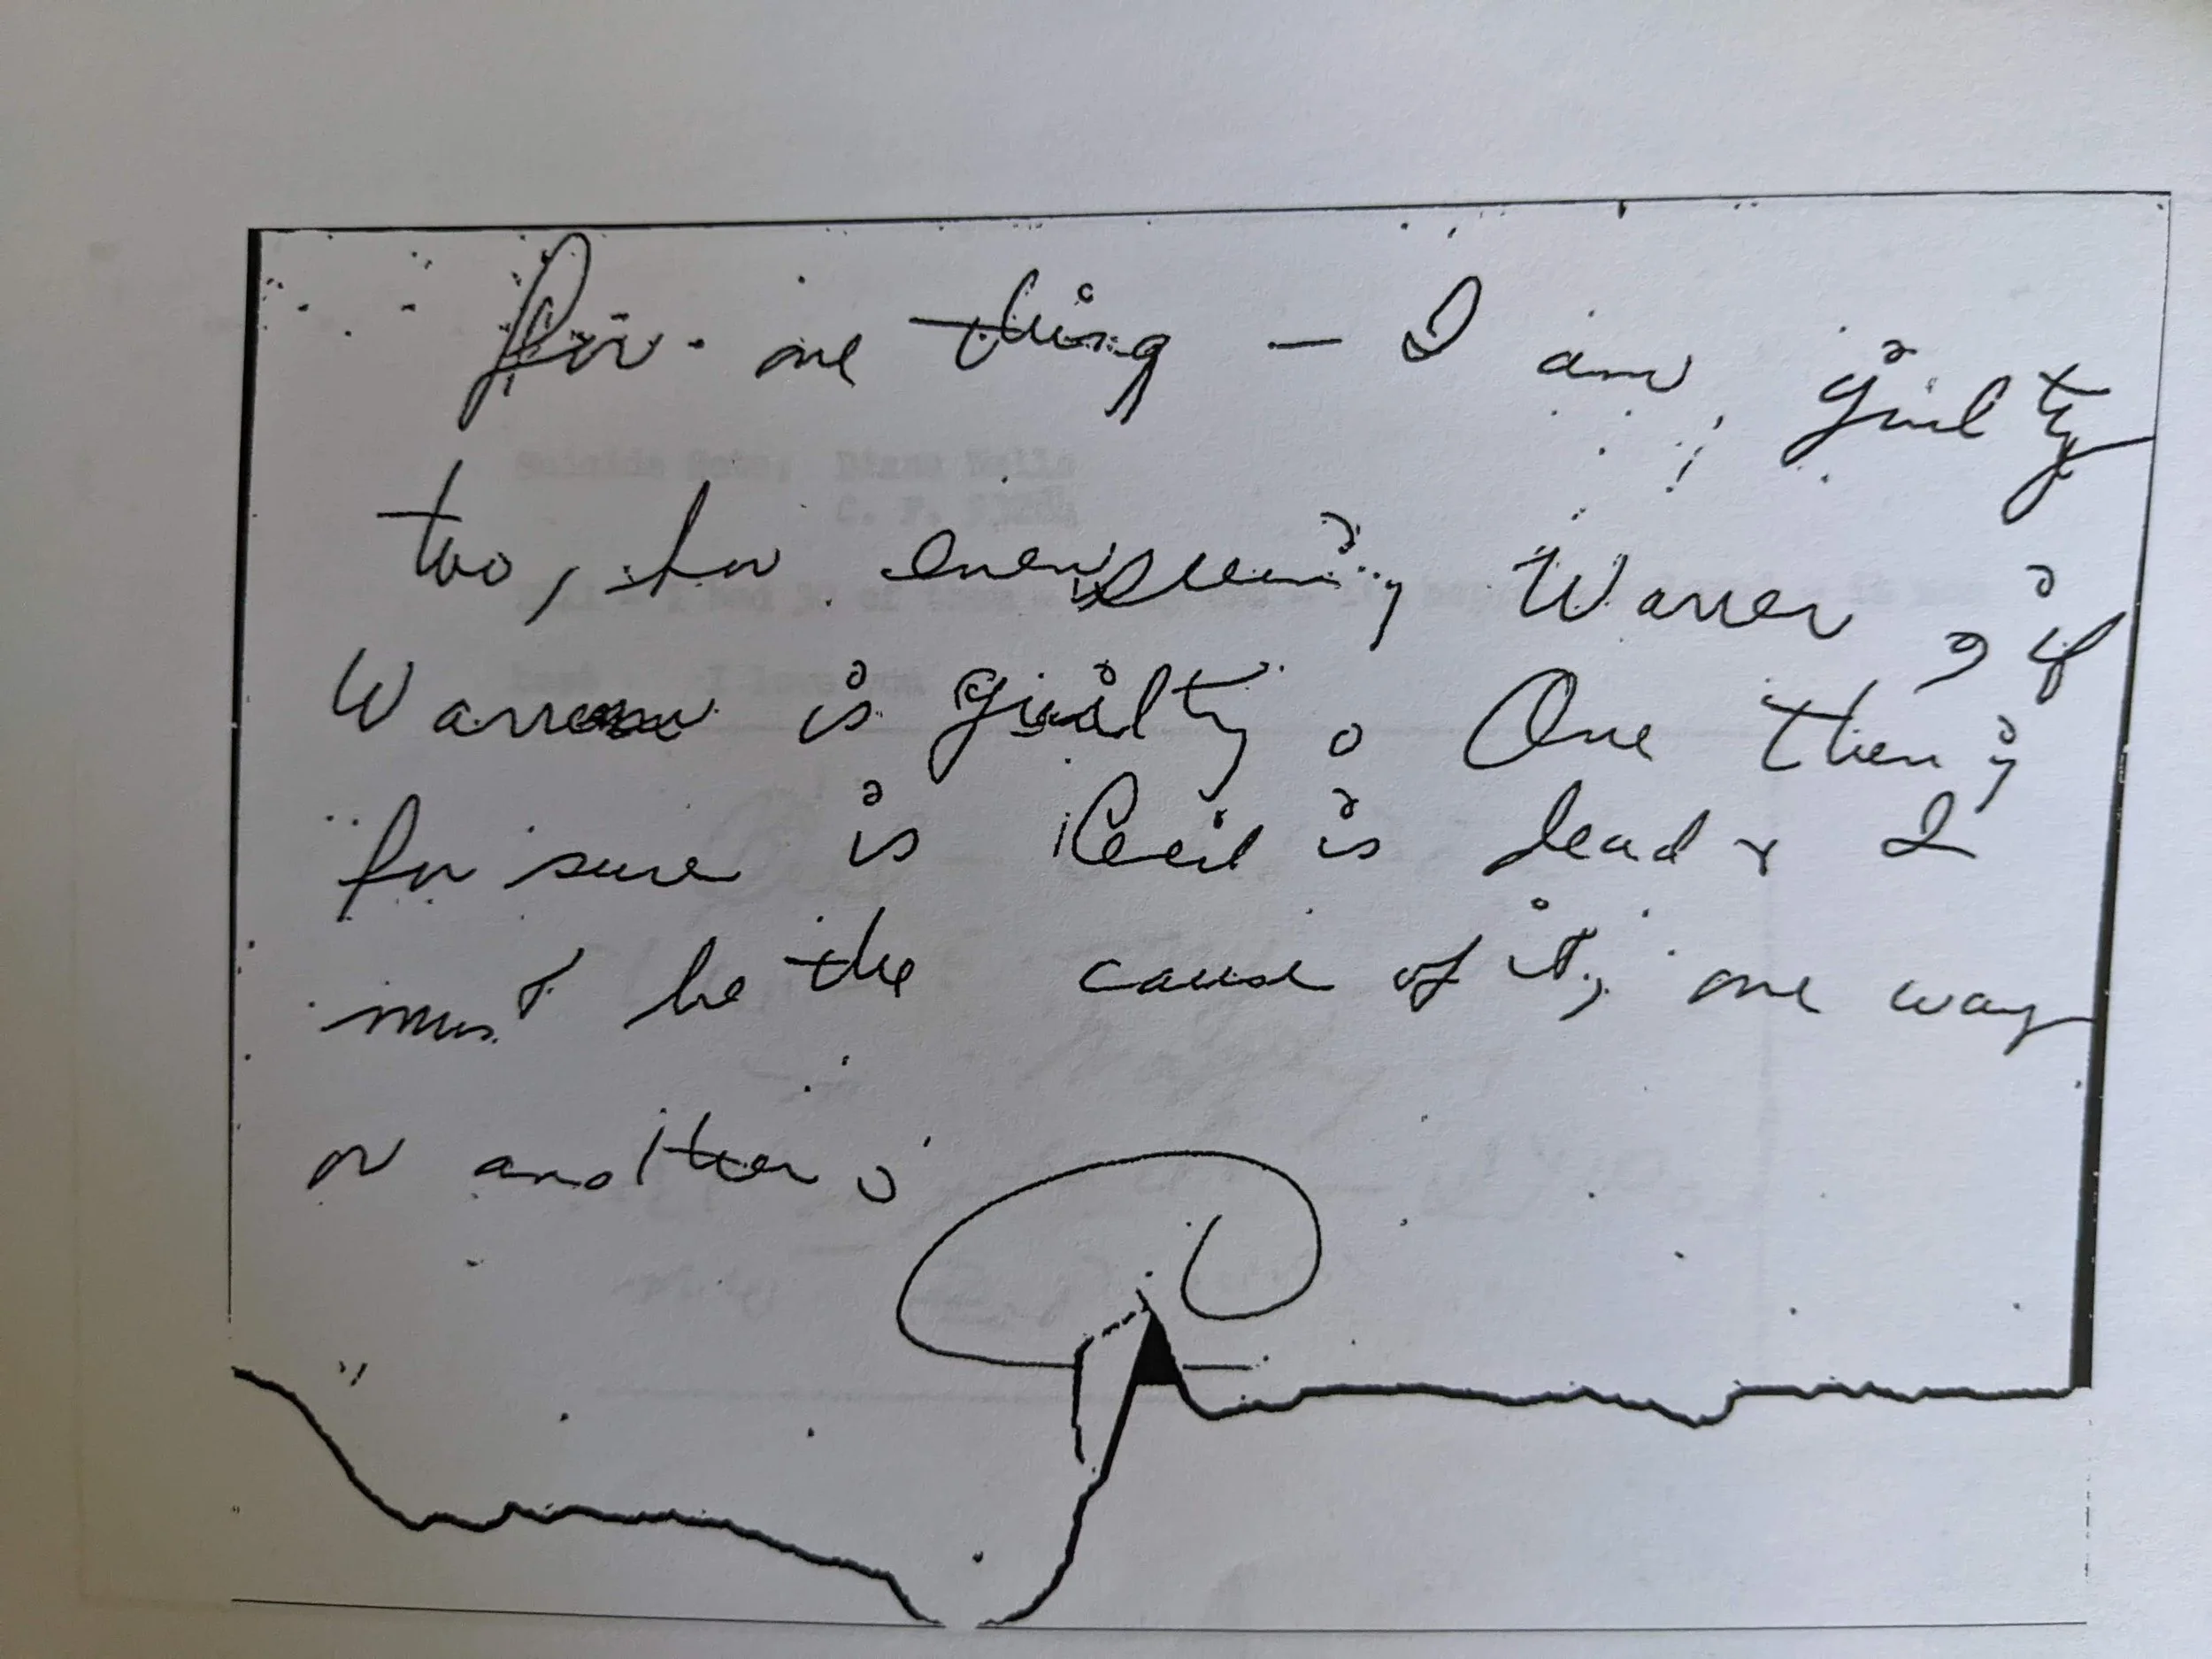 For one thing — I am guilty
too, for ever seeing Warren, if
Warren is guilty. One thing
for sure is Cecil is dead & I
must be the cause of it, one way
or another.